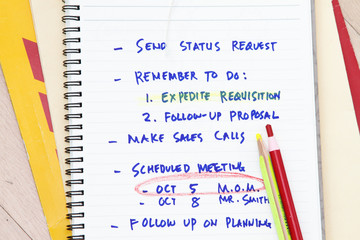 - SEND STATUS REQUEST
- REMEMBER TO DO:
1. EXPEDITE REQUISITION
2. FOLLOW-UP PROPOSAL
- MAKE SALES CALLS
- SCHEDULED MEETING
- OCT 5 M.O.M.
- OCT 8 MR. SMITH
- FOLLOW UP ON PLANNING